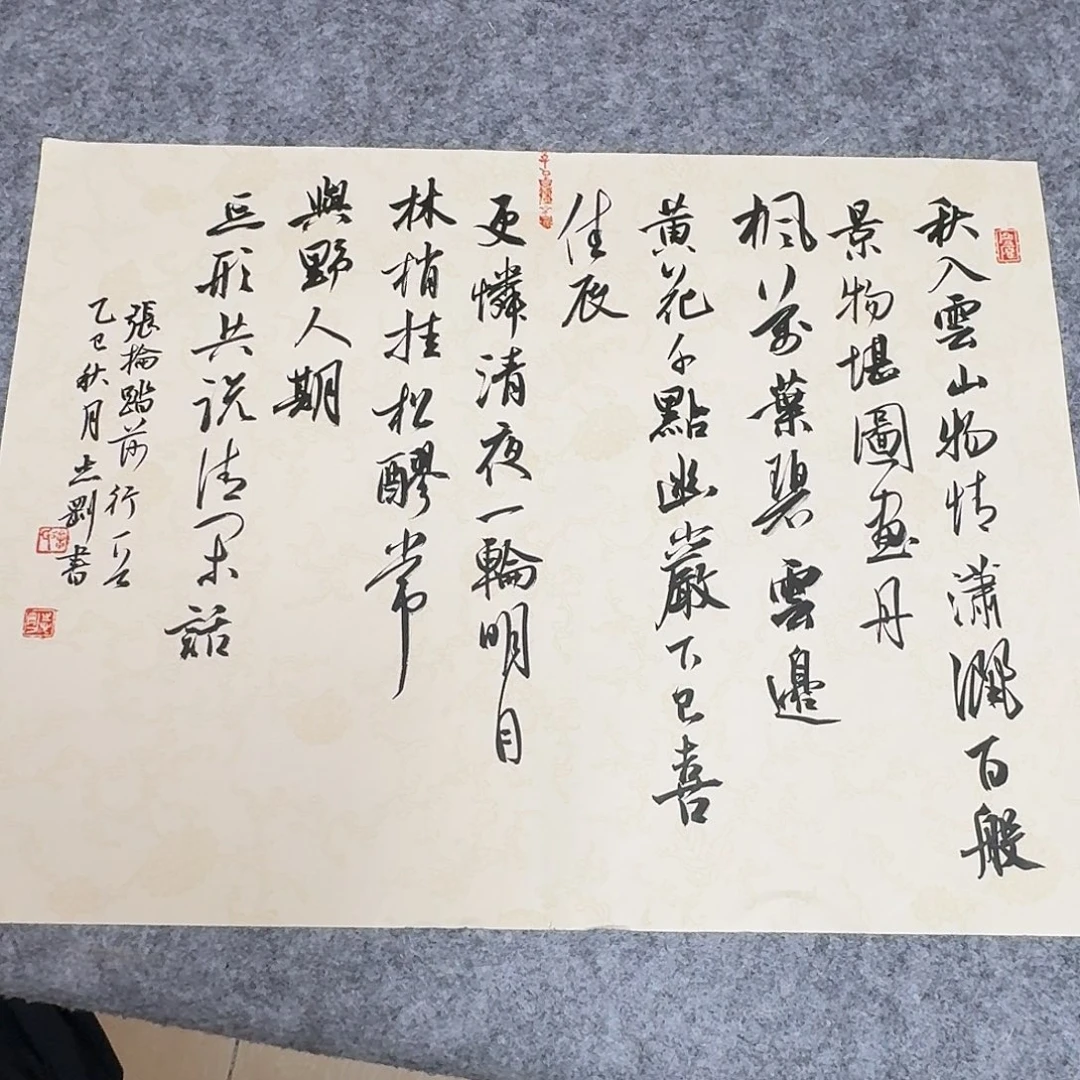 秋入雲山物情瀟灑百般
景物堪圖畫丹
楓萬葉碧雲邊
黃花千點幽巖下已喜
佳辰
更憐清夜一輪明月
林梢挂松醪常
與野人期
忘形共說清閒話
張掄踏莎行一首
乙巳秋月志剛書